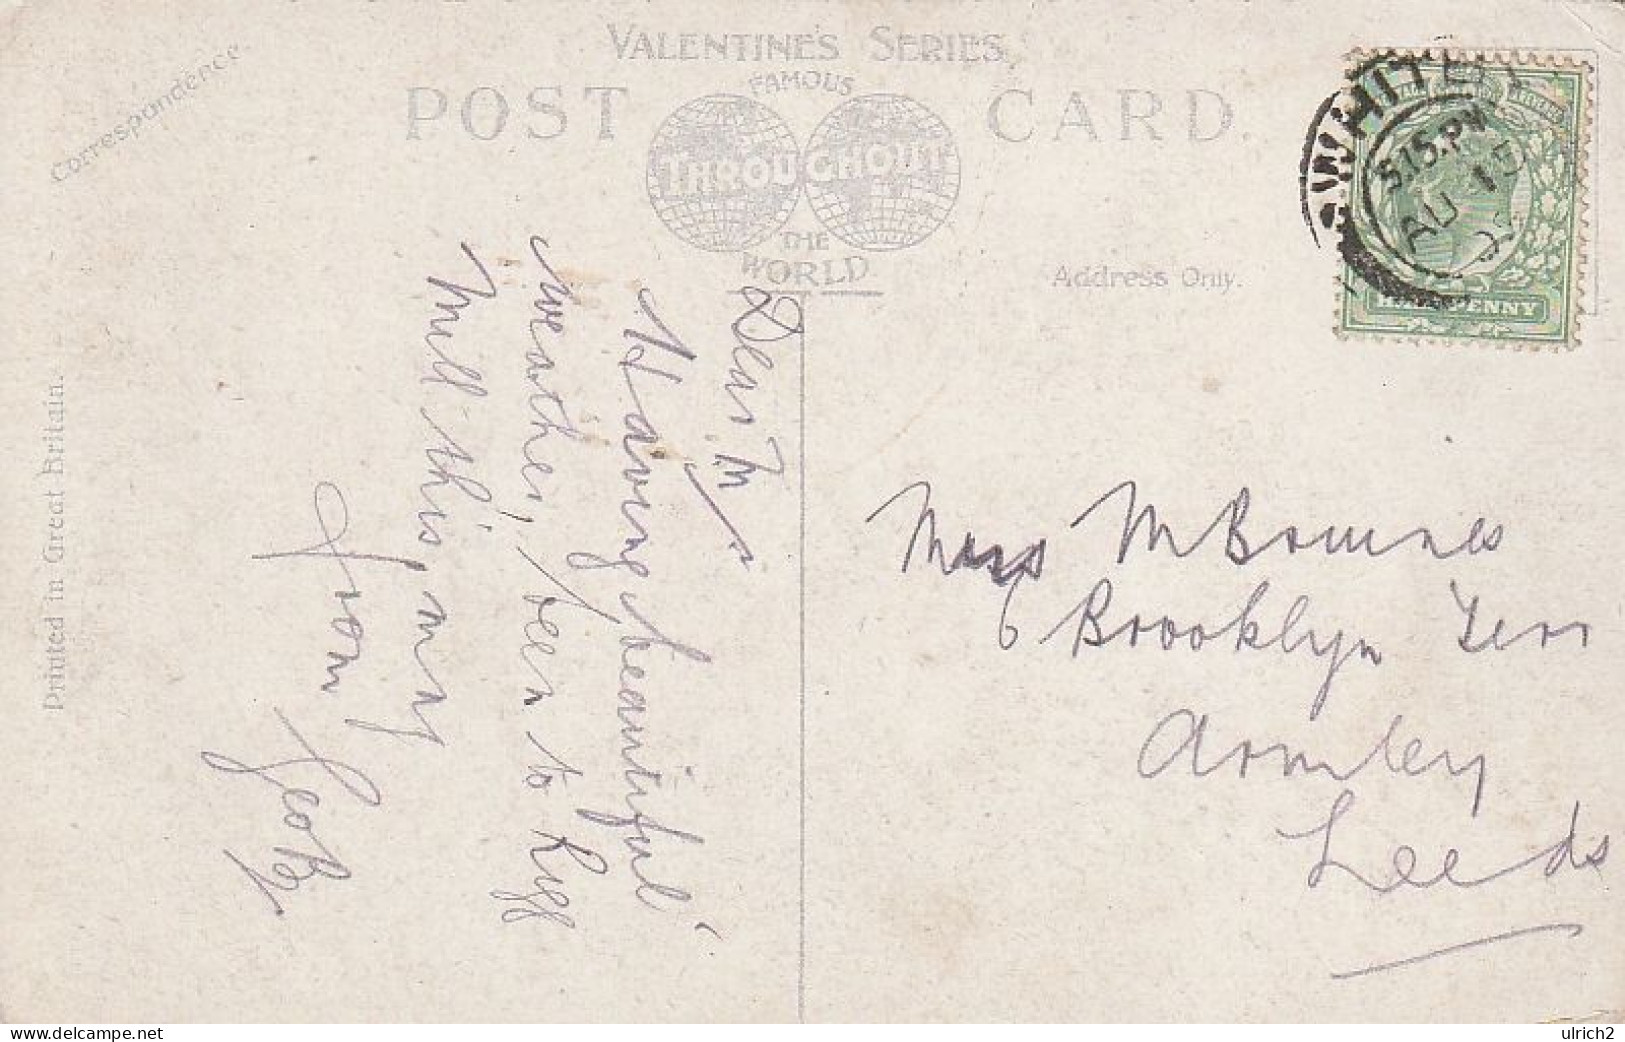 VALENTINE'S SERIES
FAMOUS
THROUGHOUT
THE
WORLD
POST CARD.
Correspondence.
Address Only.
Printed in Great Britain.
WHITBY
5.15.PM
AU 15
HALFPENNY
Dear M
Having beautiful
weather, been to Rigg
Mill this, mng
From
Geo B
Miss M
6 Brooklyn Terr
Armley
Leeds
www.delcampe.net
ulrich2